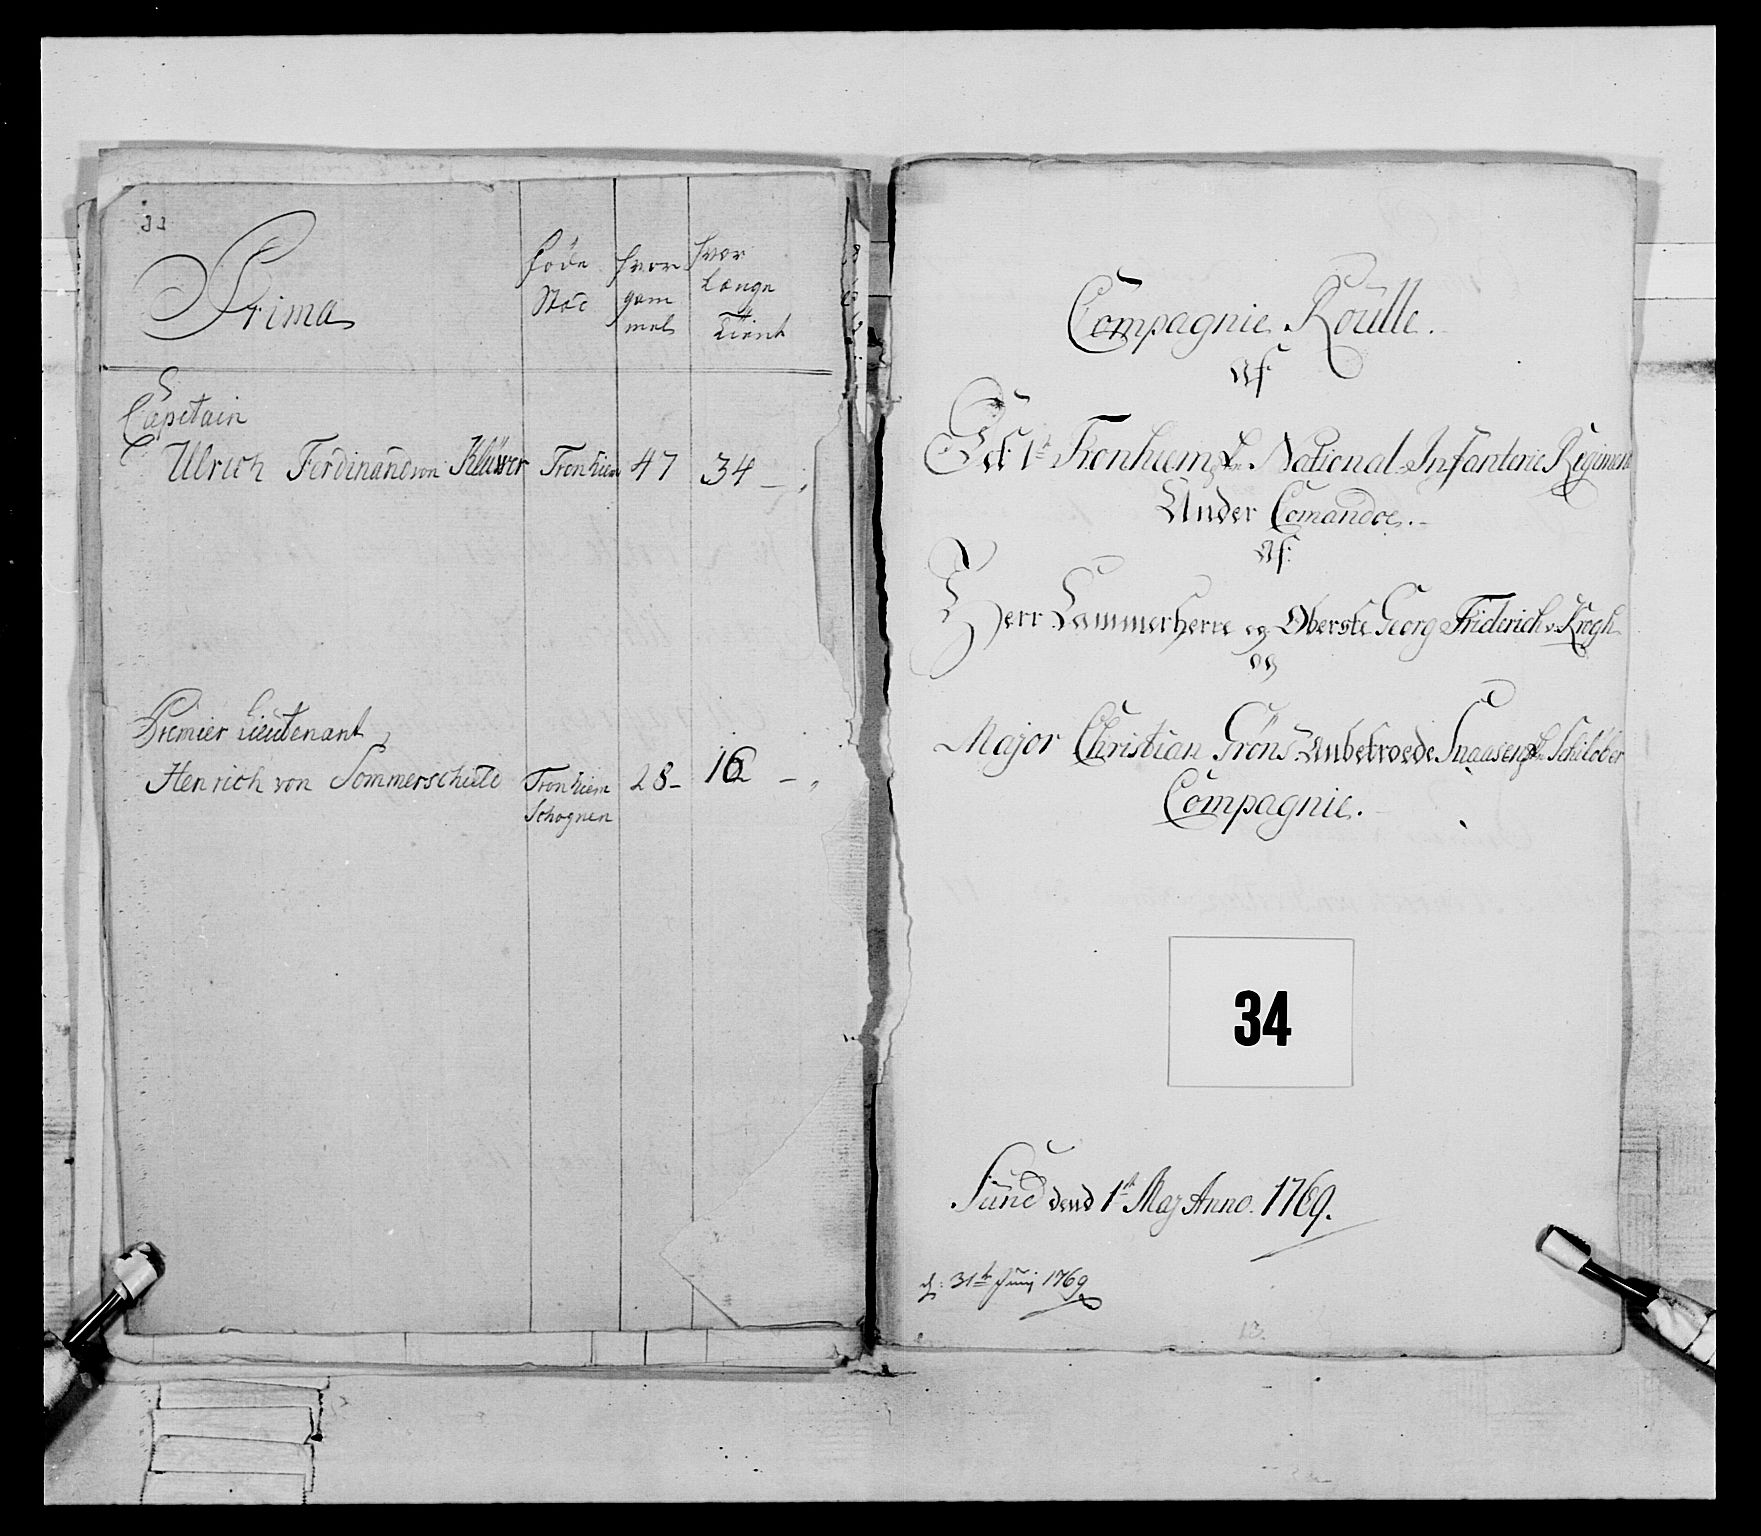 33
Prima
føde
Stæd
hvor
gam
mel
hvor
Længe
Tient
Capitain
Ulrich Ferdinand von Klüwer Tronhiem 47 34 -
Premier Lieutenant
Henrich von Sommerschield Tronhiem 28 - 16 -
Schognen
Compagnie Roulle.
Af
Det 1te Tronhiemske National Infanterie Regiment
Under Comandoe.
Af:
Herr Cammerherre og Oberste Georg Friderich v: Krogh
og
Major Christian Gröns Anbetroede Snaasenske Schilöber
Compagnie.
34
Sund dend 1te Maj Anno. 1769.
d: 31te Junij 1769
13.